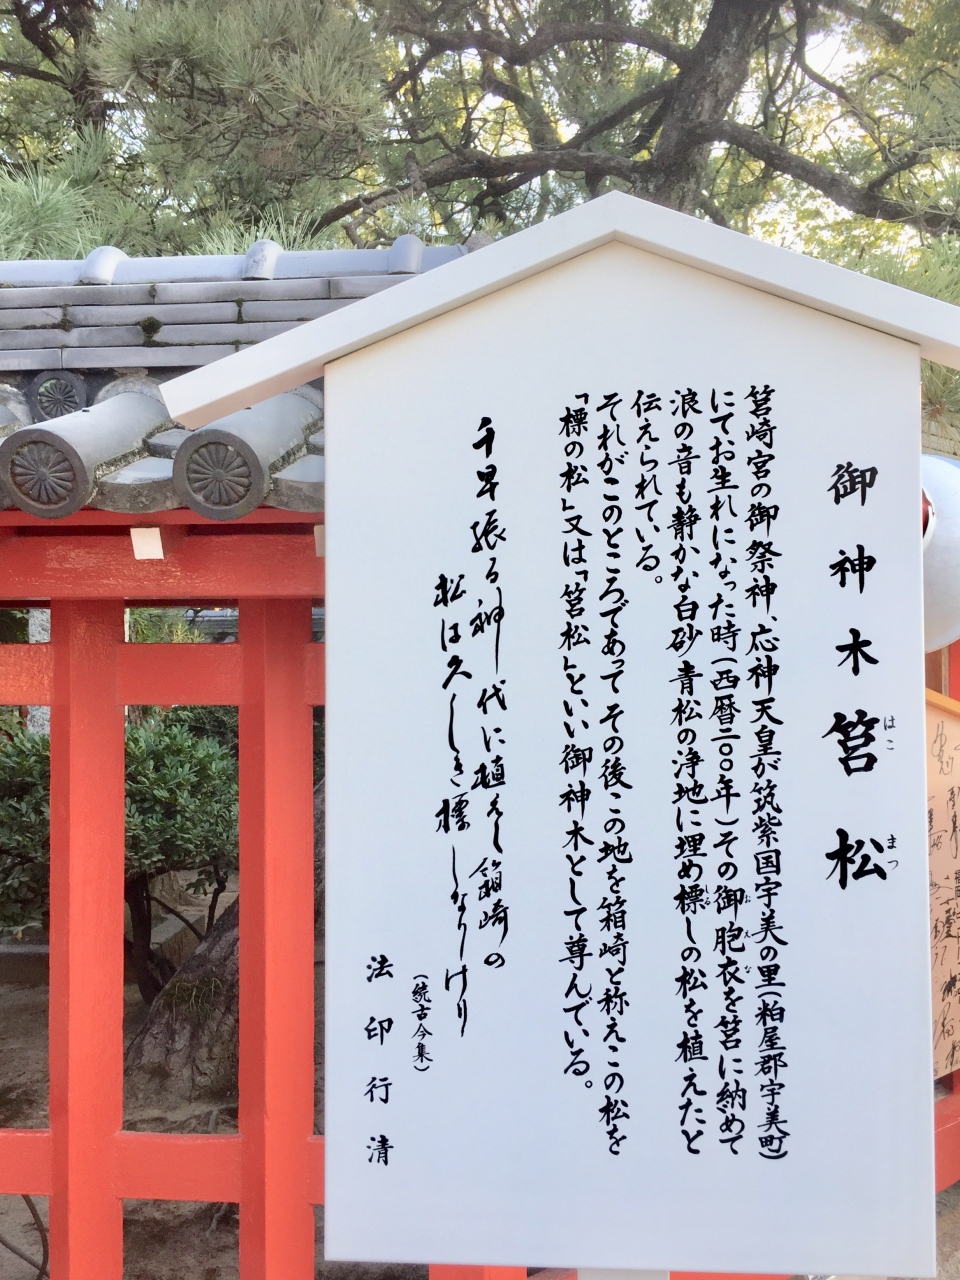 御神木筥松
はこ
まつ
筥崎宮の御祭神、応神天皇が筑紫国宇美の里(粕屋郡宇美町)
にてお生れになった時(西暦二〇〇年)その御胞衣を筥に納めて
おえな
浪の音も静かな白砂青松の浄地に埋め標しの松を植えたと
しるし
伝えられている。
それがこのところであってその後この地を箱崎と称えこの松を
「標の松」又は「筥松」といい御神木として尊んでいる。
千早振る神代に植えし箱崎の
松は久しき標しなりけり
(続古今集)
法印行清